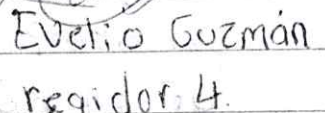 Evelio Guzmán
regidor 4.